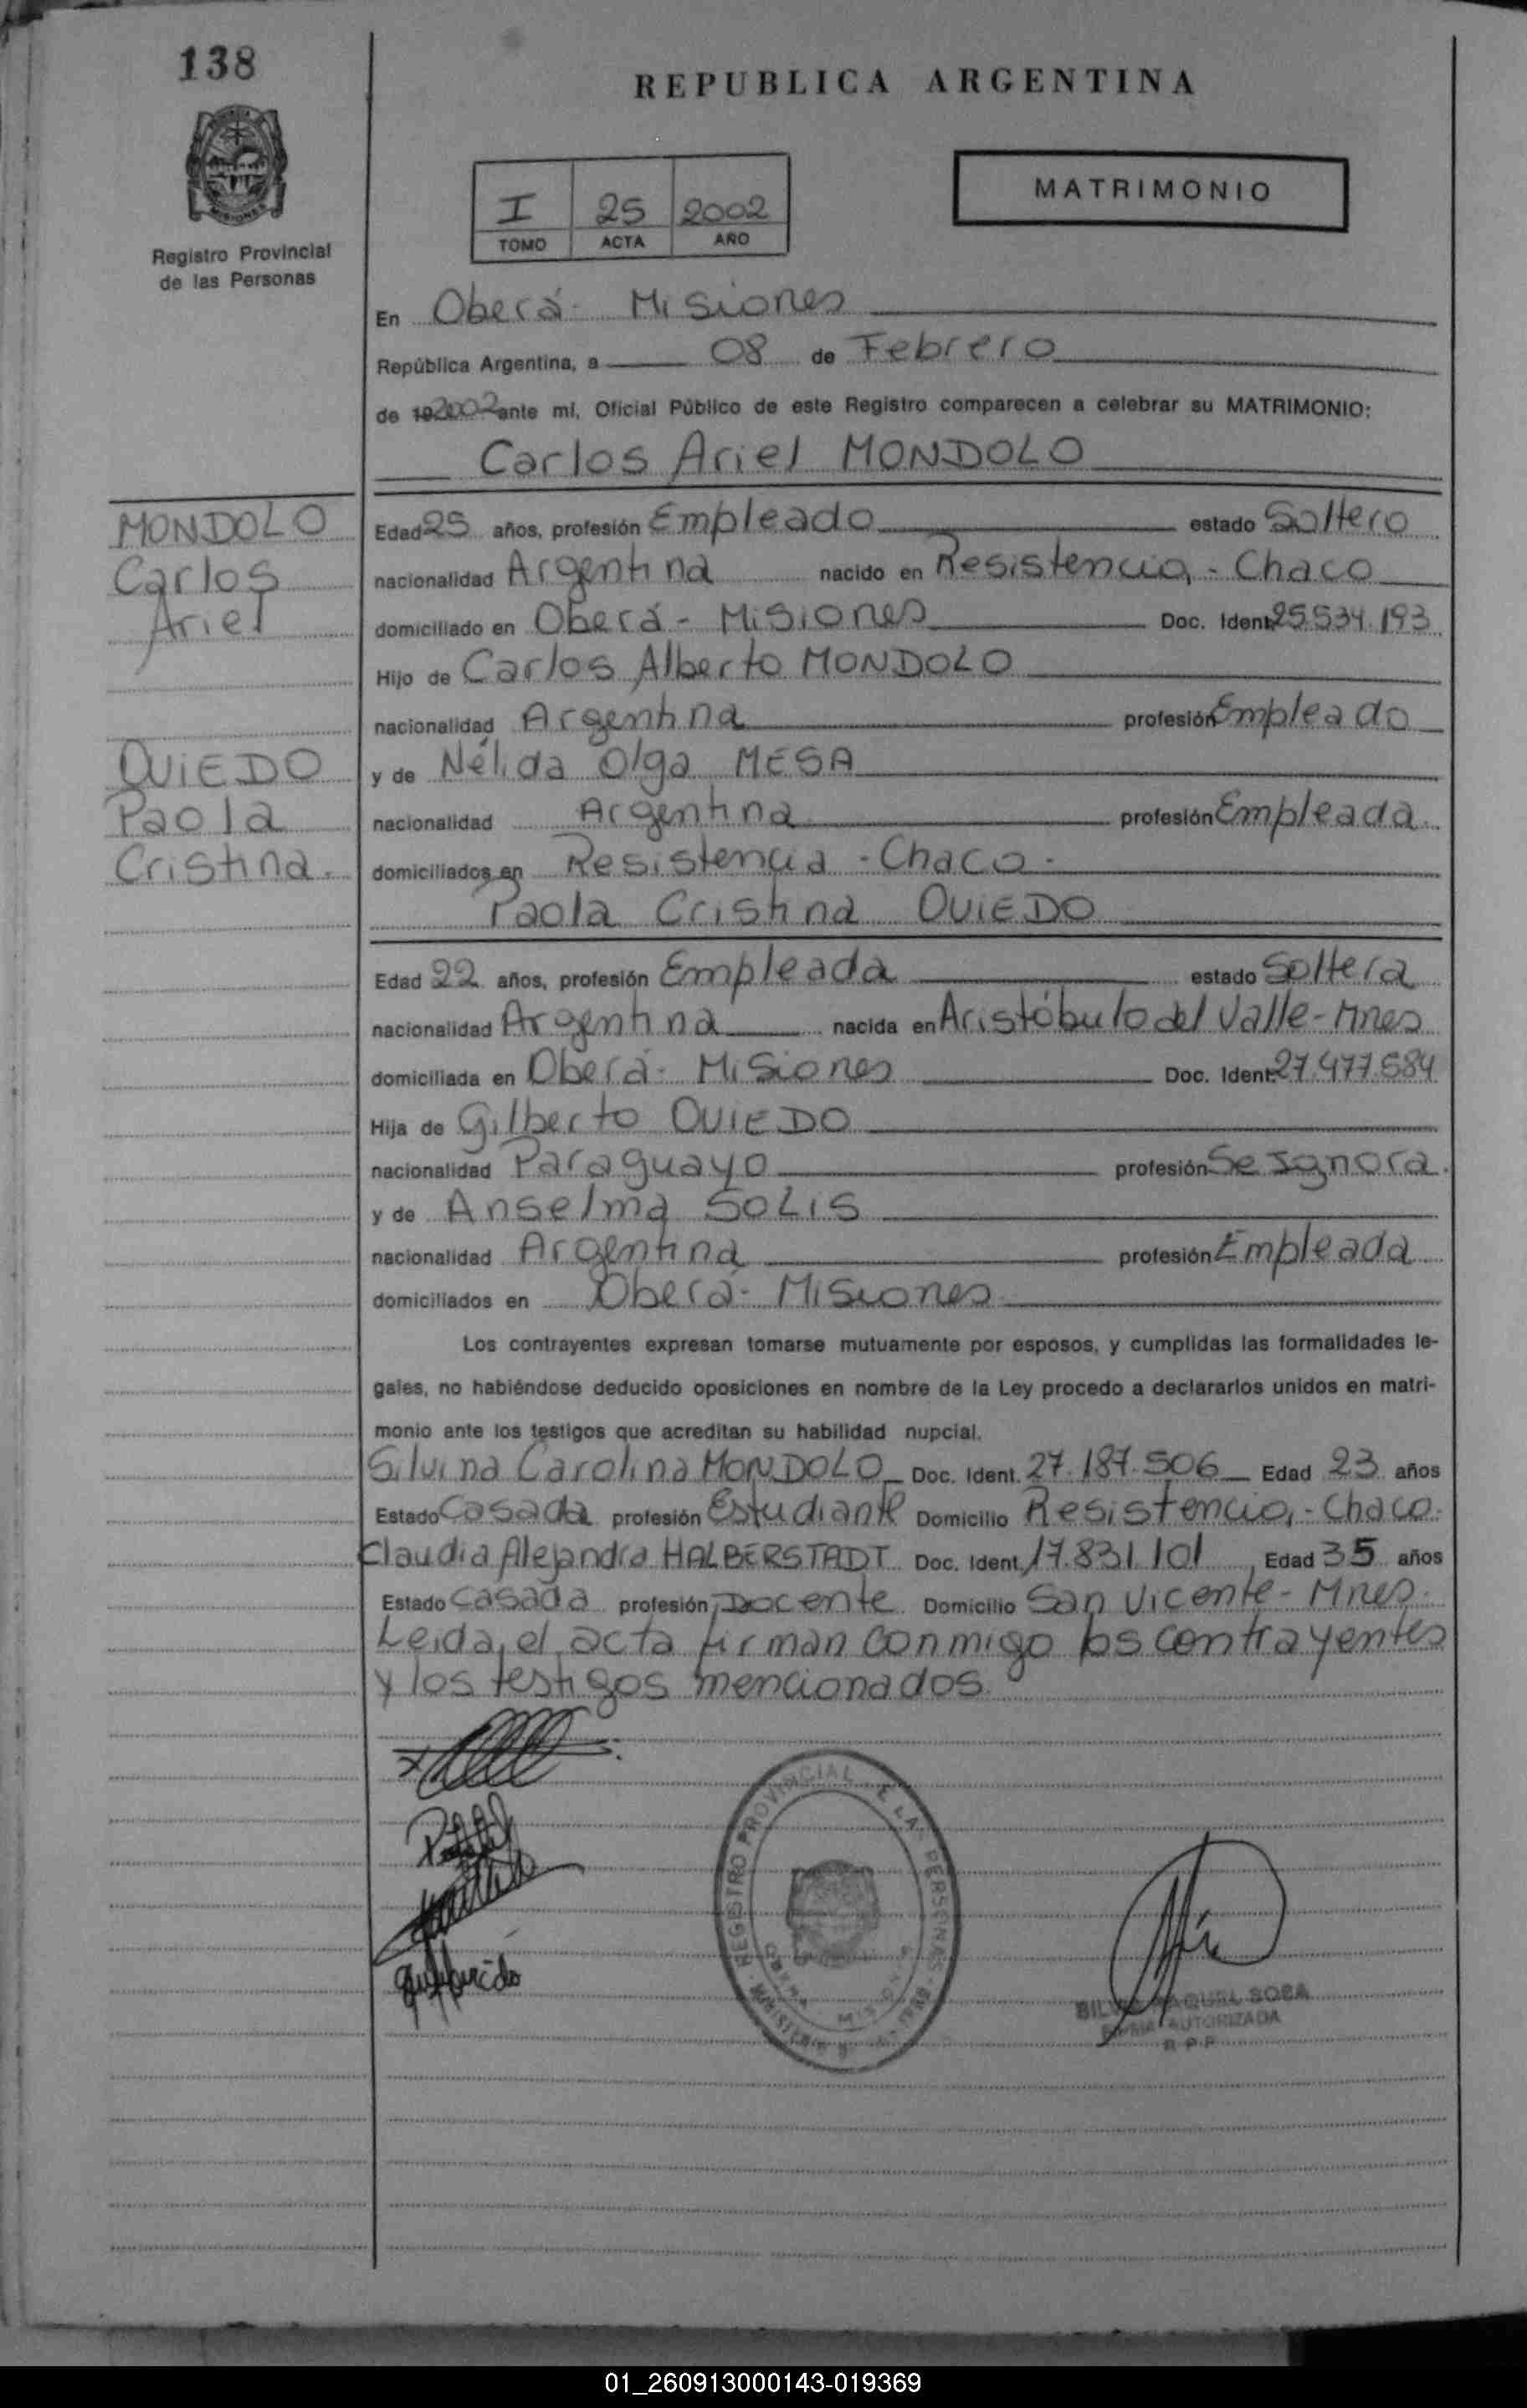 138
REPUBLICA ARGENTINA
MISIONES
Registro Provincial
de las Personas
I 25 2002
TOMO ACTA AÑO
MATRIMONIO
En Oberá - Misiones
República Argentina, a 08 de Febrero
de 19 2002 ante mí, Oficial Público de este Registro comparecen a celebrar su MATRIMONIO:
Carlos Ariel MONDOLO
MONDOLO
Carlos
Ariel
Edad 25 años, profesión Empleado estado Soltero
nacionalidad Argentina nacido en Resistencia, - Chaco
domiciliado en Oberá - Misiones Doc. Ident. 25.534.193
Hijo de Carlos Alberto MONDOLO
nacionalidad Argentina profesión Empleado
OVIEDO
Paola
Cristina.
y de Nélida Olga MESA
nacionalidad Argentina profesión Empleada
domiciliados en Resistencia - Chaco -
Paola Cristina OVIEDO
Edad 22 años, profesión Empleada estado Soltera
nacionalidad Argentina nacida en Aristóbulo del Valle - Mnes
domiciliada en Oberá - Misiones Doc. Ident. 27.477.584
Hija de Gilberto OVIEDO
nacionalidad Paraguayo profesión Se Ignora.
y de Anselma SOLIS
nacionalidad Argentina profesión Empleada
domiciliados en Oberá - Misiones
Los contrayentes expresan tomarse mutuamente por esposos, y cumplidas las formalidades le-
gales, no habiéndose deducido oposiciones en nombre de la Ley procedo a declararlos unidos en matri-
monio ante los testigos que acreditan su habilidad nupcial.
Silvina Carolina MONDOLO Doc. Ident. 27.187.506 Edad 23 años
Estado Casada profesión Estudiante Domicilio Resistencia, - Chaco.
Claudia Alejandra HALBERSTADT Doc. Ident. 17.831.101 Edad 35 años
Estado Casada profesión Docente Domicilio San Vicente - Mnes.
Leida, el acta firman conmigo los contrayentes
y los testigos mencionados.
REGISTRO PROVINCIAL DE LAS PERSONAS
SILVIA RAQUEL SOSA
FIRMA AUTORIZADA
R.P.P.
01_260913000143-019369